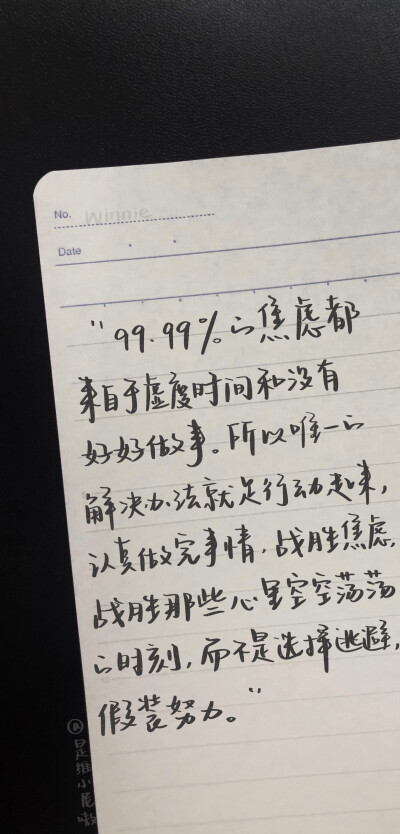 No. Winnie
Date
"99.99%的焦虑都
来自于虚度时间和没有
好好做事。所以唯一的
解决办法就是行动起来，
认真做完事情，战胜焦虑，
战胜那些心里空空荡荡
的时刻，而不是选择逃避，
假装努力。"